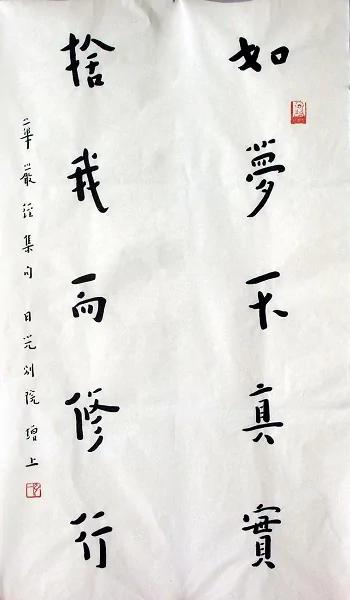 如夢不真實
捨我而修行
華嚴經集句 日光別院贈上